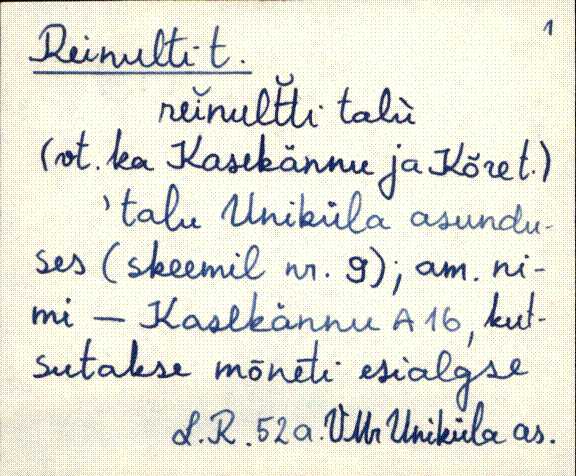 1
Reinulti-t.
reĭnult̆ti talù
(vt. ka Kasekännu ja Kõre t.)
'talu Uniküla asundu-
ses (skeemil nr. 9); am. ni-
mi — Kasekännu A 16, kut-
sutakse mõneti esialgse
L.R. 52a. VMr Uniküla as.